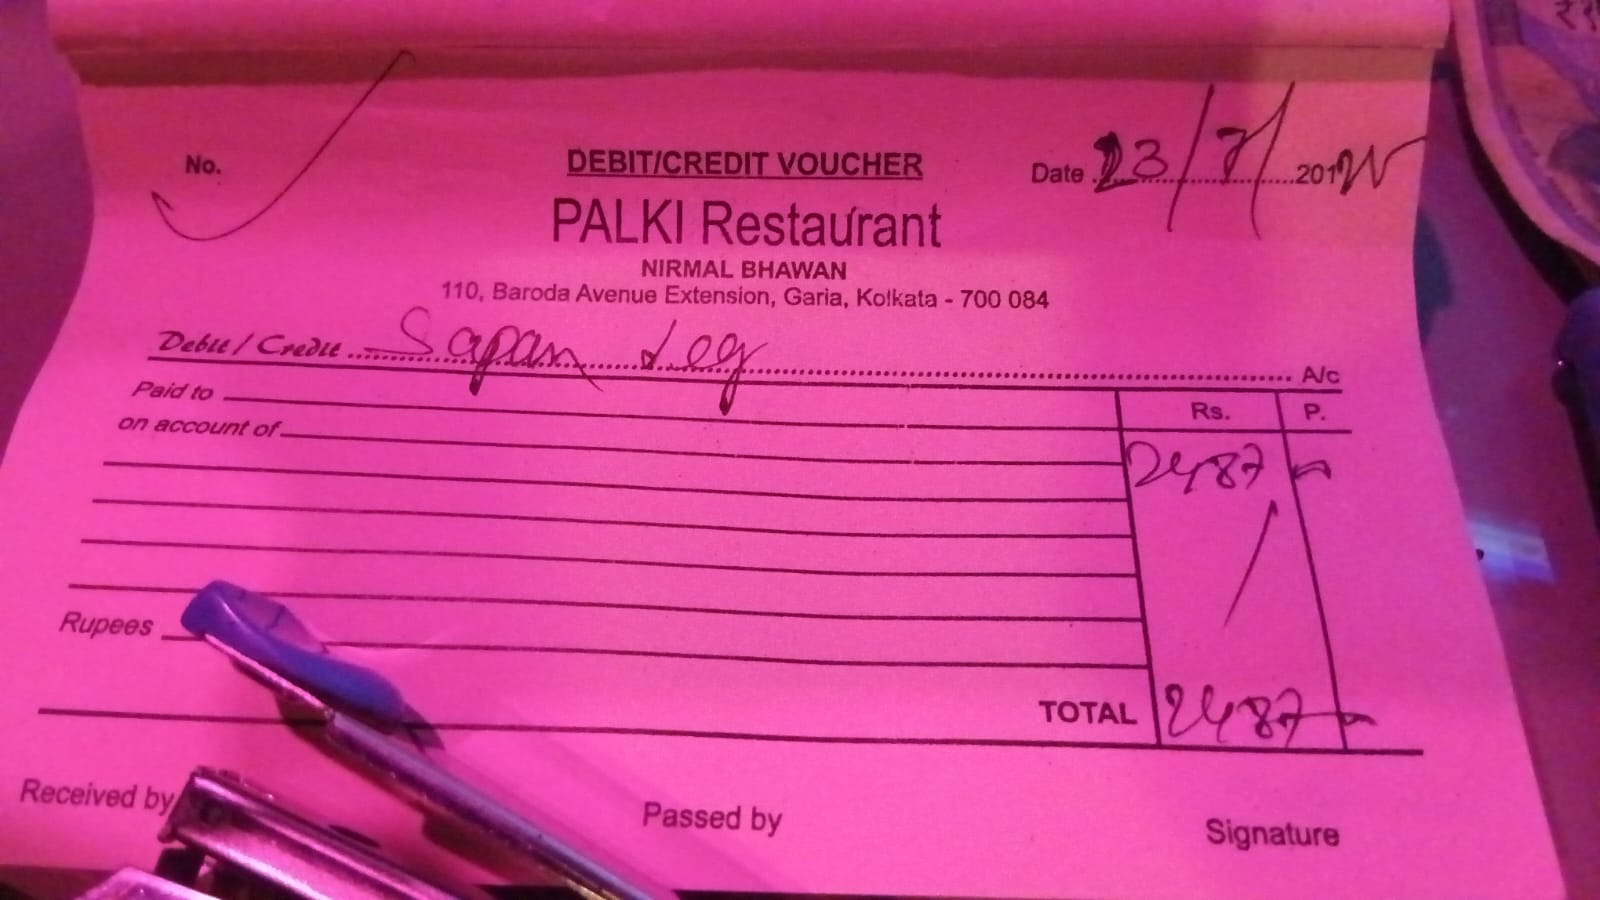 No.
DEBIT/CREDIT VOUCHER
Date 23/7/ 201
PALKI Restaurant
NIRMAL BHAWAN
110, Baroda Avenue Extension, Garia, Kolkata - 700 084
Debit / Credit Sapan Leg A/c
Paid to
Rs. P.
on account of
2487
Rupees
TOTAL 2487
Received by
Passed by
Signature